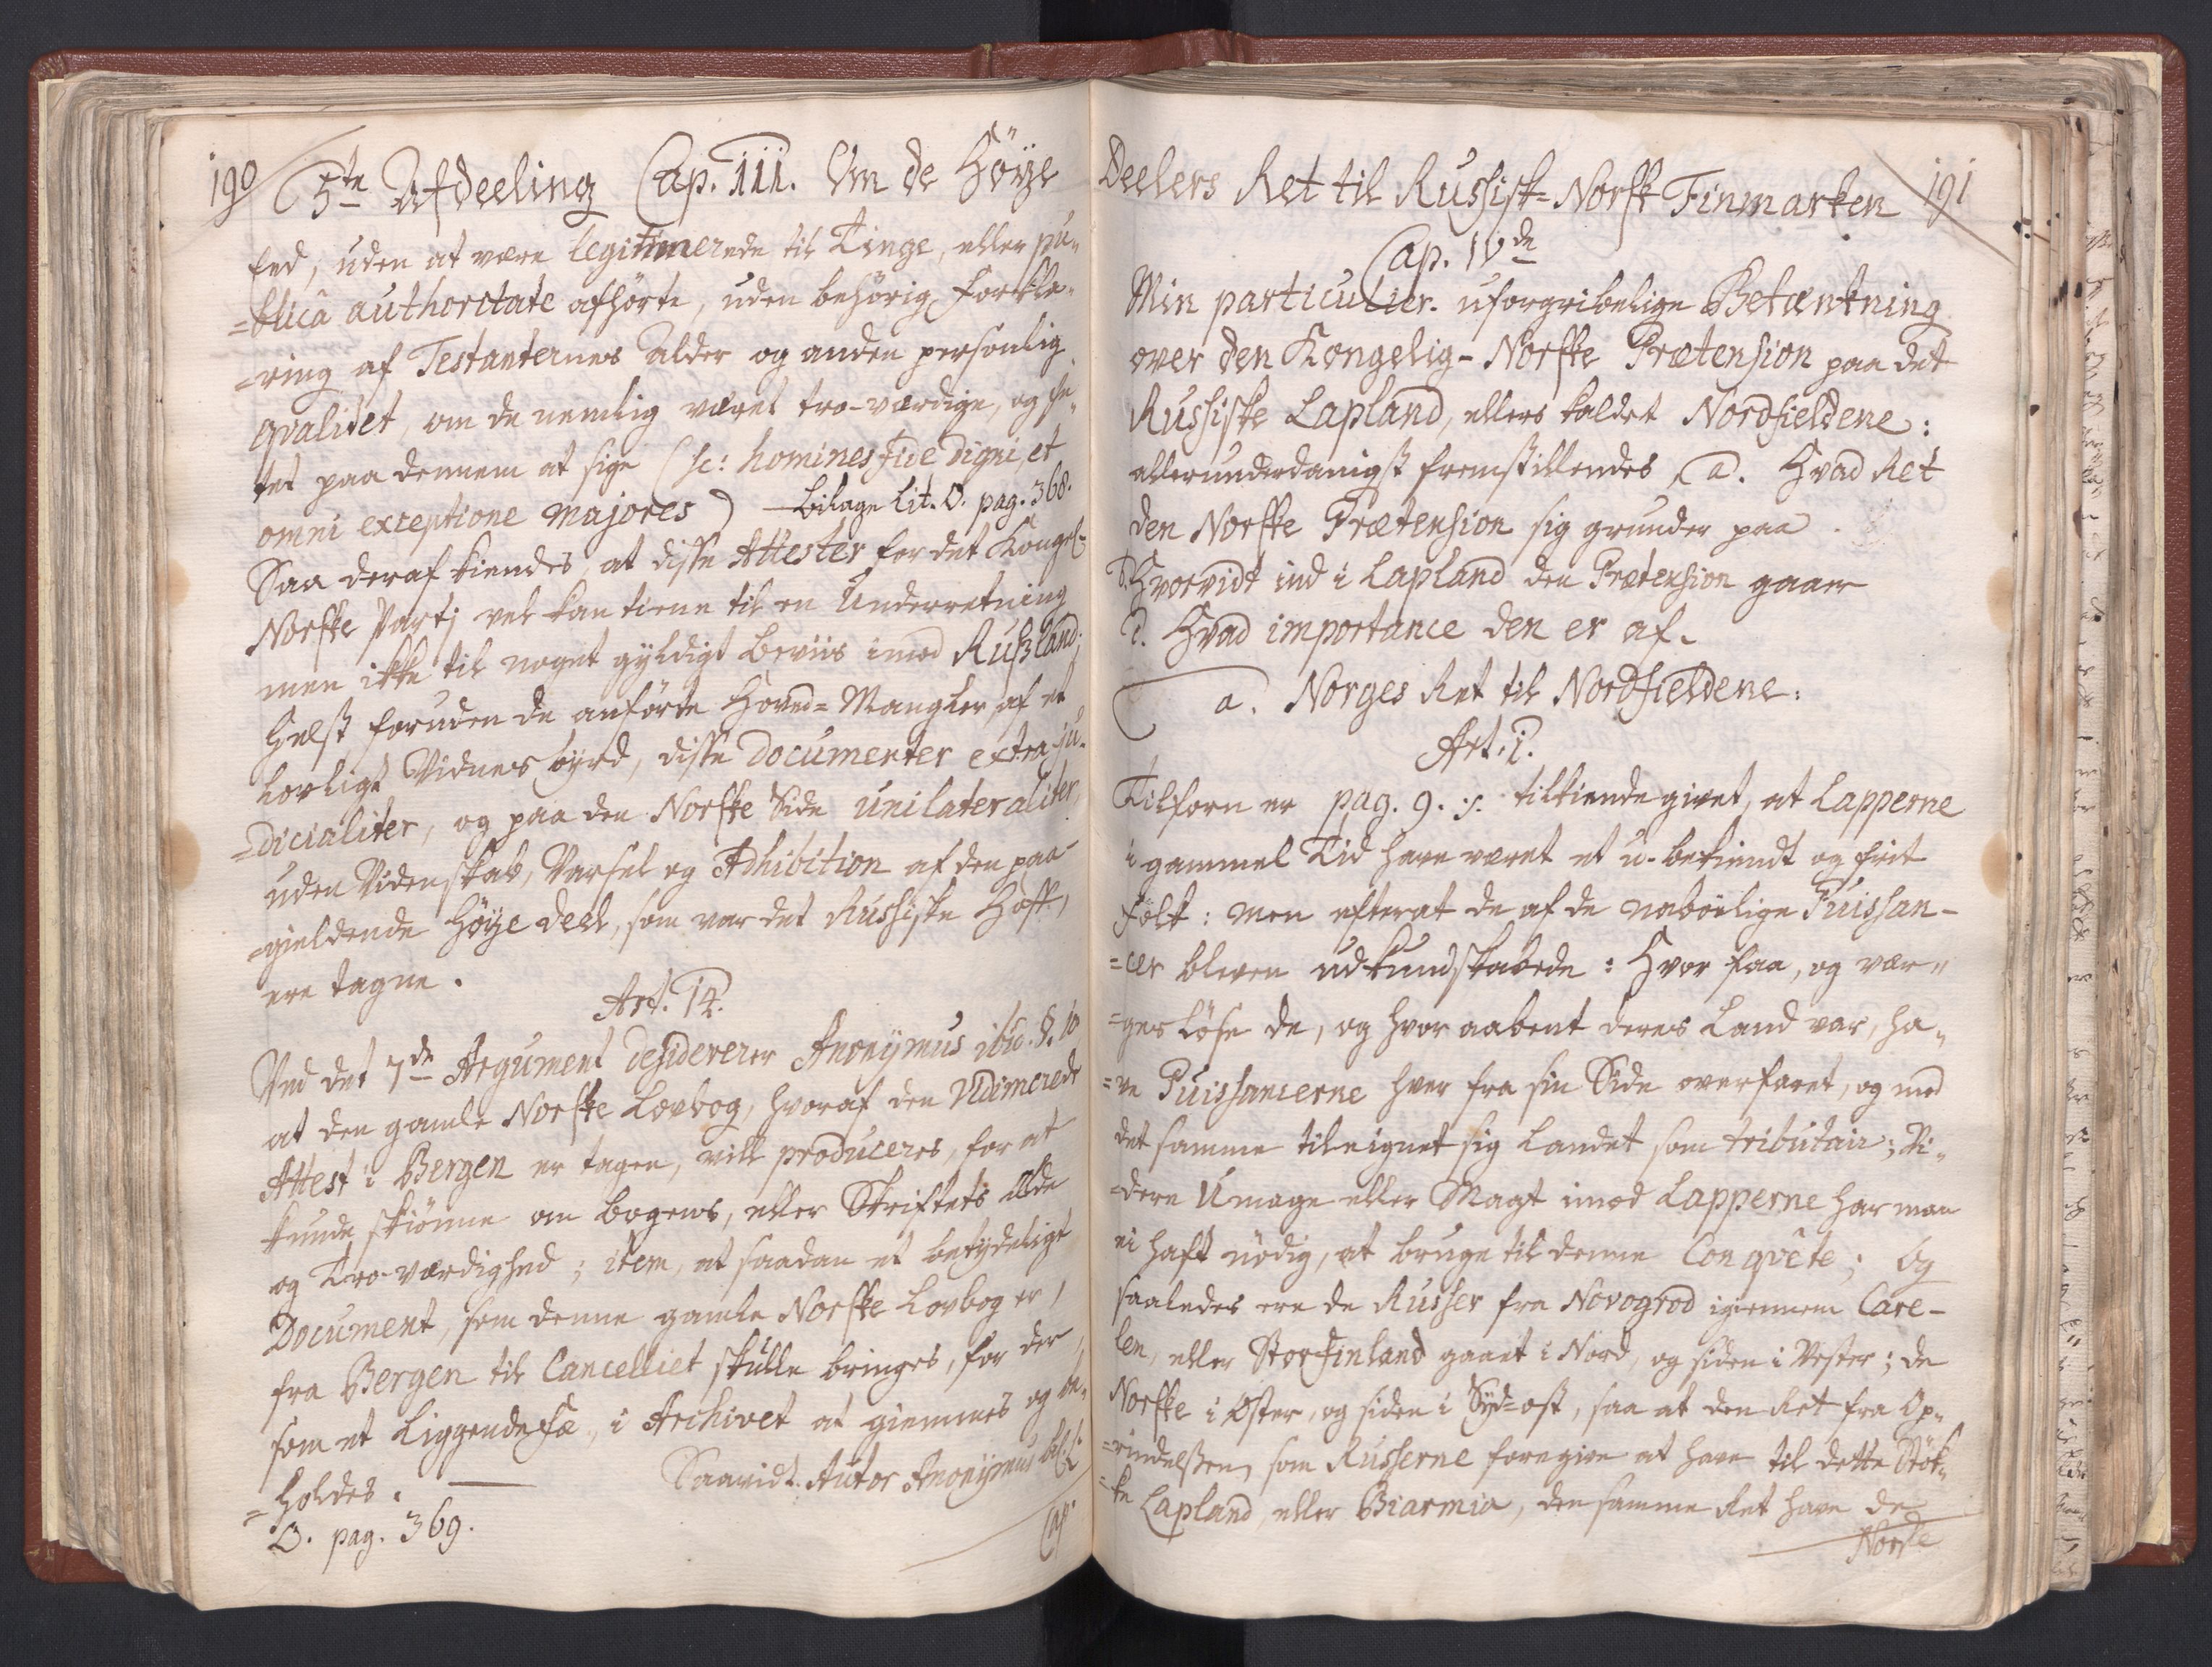 190
5te Afdeeling Cap. III. Om de Höÿe
Eed, uden at være legitimerede til Tinge, eller pu-
=blicâ authoritate afhörte, uden behörig forkla-
=ring af Testanternes Alder og anden personlig
qvalitet, om de nemlig været tro-værdige, og
tet paa dennem at sige (sc: homines fide digni, et
omni exceptione majores) Bilage Lit. O. pag. 368.
Saa deraf kiendes, at disse Attester for det Kongel-
Norske Parti vel kan tiene til en Underretning
men ikke til noget gÿldigt Beviis imod Rusland;
Helst foruden de anförte Hoved-Mangler, af et
lovligt Vidnesbÿrd, disse Documenter extra ju-
=dicialiter, og paa den Norske Side unilateraliter,
uden Videnskab, Varsel og Adhibition af den paa-
=gieldende Höÿe Deel, som var det Russiske Hoff,
ere tagne.
Art. 14.
Ved det 7de Argument desidererer Anonÿmus ibid. §. 10
at den gamle Norske Lovbog, hvoraf den Vidimerede
Attest i Bergen er tagen, vill produceres, for at
kunde skiönne om Bogens, eller Skriftets Ælde
og Tro-værdighed; item, at saadan et betÿdeligt
Document, som denne gamle Norske Lovbog er,
fra Bergen til Cancelliet skulle bringes, for der,
som et Liggendefæ, i Archivet at giemmes og be-
=holdes. Saavidt Autor Anonÿmus
O. pag. 369.
Cap.
Deelers Ret til Russisk-Norsk Finmarken 191
Cap. IVde
Min particulier uforgribelige Betænkning
over den Kongelig-Norske Prætension paa det
Russiske Lapland, ellers kaldet Nordfieldene:
allerunderdanigst fremstillendes, a. Hvad Ret
den Norske Prætension sig grunder paa.
b. Hvorvidt ind i Lapland den Prætension gaaer
c. Hvad importance den er af.
a. Norges Ret til Nordfieldene:
Art. 1.
Tilforn er pag. 9. tilkiende givet, at Lapperne
i gammel Tid have været et u-bekiendt og frit
Folk: men efterat de af de naboelige Puissan-
=cer bleven udkundskabede: Hvor faa, og vær-
=geslöse de, og hvor aabent deres Land var, ha-
=ve Puissancerne hver fra sin Side overfaret, og med
det samme tileignet sig Landet som tributair; Vi-
=dere Umage eller Magt imod Lapperne har man
ei haft nödig, at bruge til denne Conqvête; og
saaledes ere de Russer fra Novogrod igiennem Care-
len, eller Storfinland gaaet i Nord, og siden i Vester; de
Norske i Öster, og siden i Sÿd-ost, saa at den Ret fra Op-
=rindelsen, som Russerne foregive at have til dette Stÿk-
=ke Lapland, eller Biarmia, den samme Ret have de
Norske